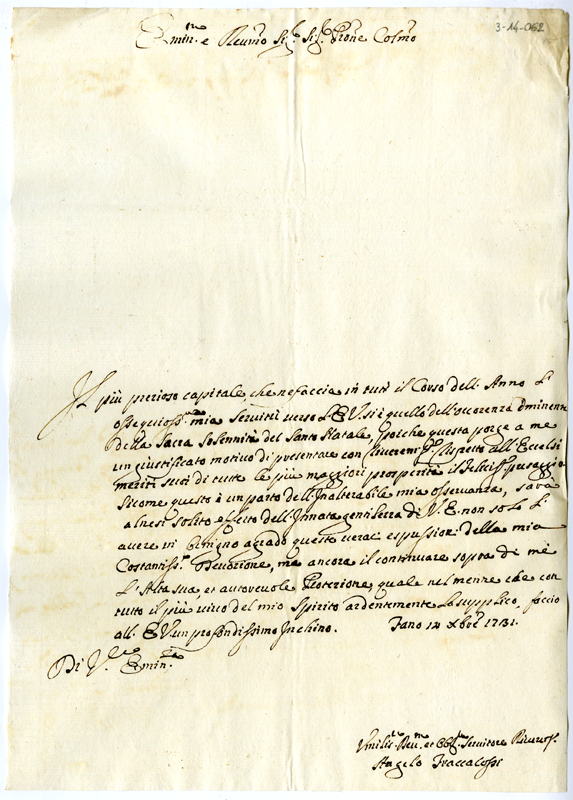 3-14-062
Emin.mo e Reumo Sig.r Sig.r Prone Colmo
Il più prezioso capitale, che ne faccia in tutt il Corso dell. Anno L'
ossequioss.ma mia Servitù verso L'E V. si è quello dell'ocorenza eminente
della Sacra Solennità del Santo Natale, poiche questa porge a me
un giustificato motivo di presentare con riverent.mo Rispetto all'Eccelsi
meriti suoi di tutte le più maggiori prosperità il felicis. presaggio
Sicome questo è un parto dell'Inalterabile mia osservanza, sarà
altresì solito effetto dell'Innata gentilezza di V. E. non solo L'
avere in benigno agrado queste verac espression: della mia
Costantiss.a Devozione, ma ancora il continuare sopra di me
L'Alta sua et autorevole Protezione, quale nel mentre che con
tutto il più vivo del mio Spirito ardentemente La supplico, faccio
all. E V. un profondissimo Inchino. Fano 14 Xbre 1731.
Di V.ra Emin.za
Vmilis.mo Deu.mo et Obb.mo Servitore
Angelo